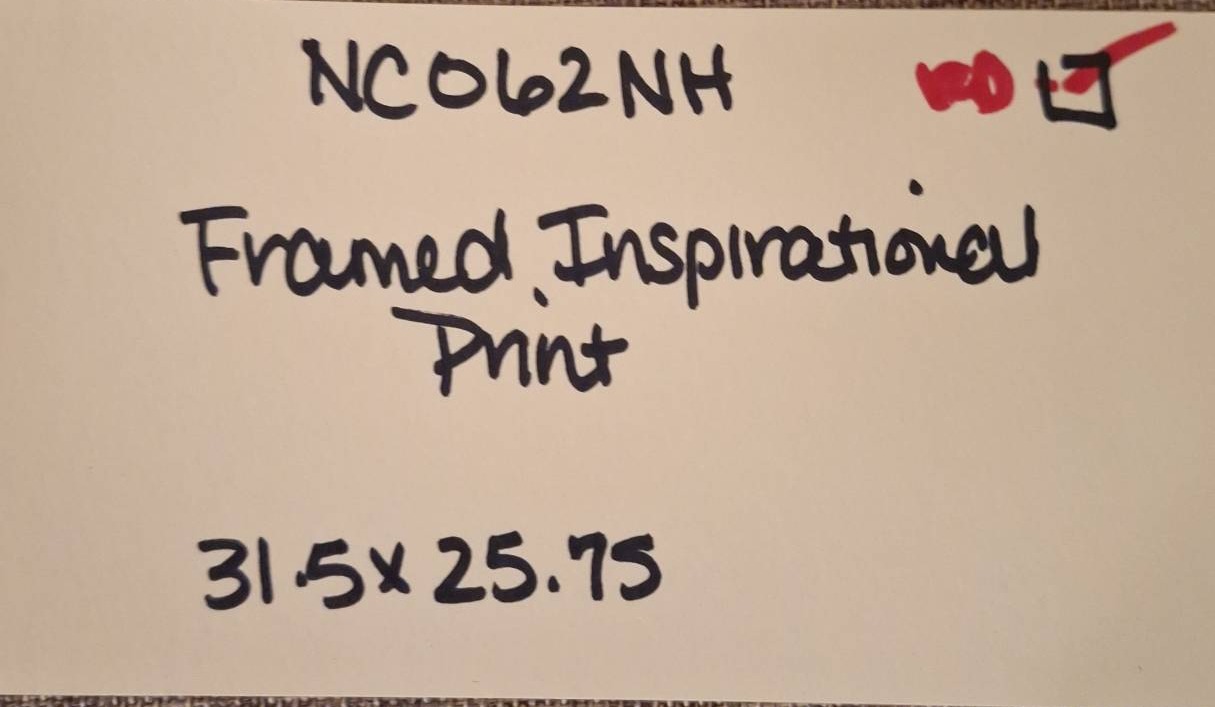 NC062NH
Framed Inspirational
Print
31.5 x 25.75